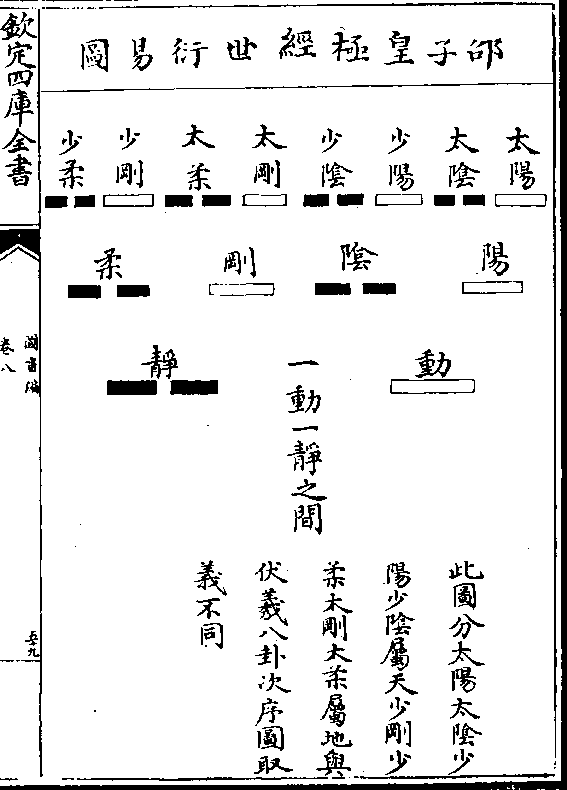 欽定四庫全書
邵子皇極經世衍易圖
太陽
太陰
少陽
少陰
太剛
太柔
少剛
少柔
陽
陰
剛
柔
動
一動一靜之間
靜
此圖分太陽太陰少
陽少陰屬天少剛少
柔太剛太柔屬地與
伏羲八卦次序圖取
義不同
圖書編
卷八
五九